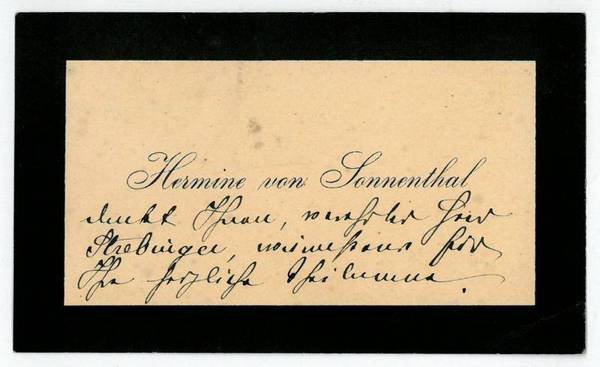 Hermine von Sonnenthal
dankt Ihnen, verehrter Herr
Strebinger, wärmstens für
Ihre herzliche Theilnahme.